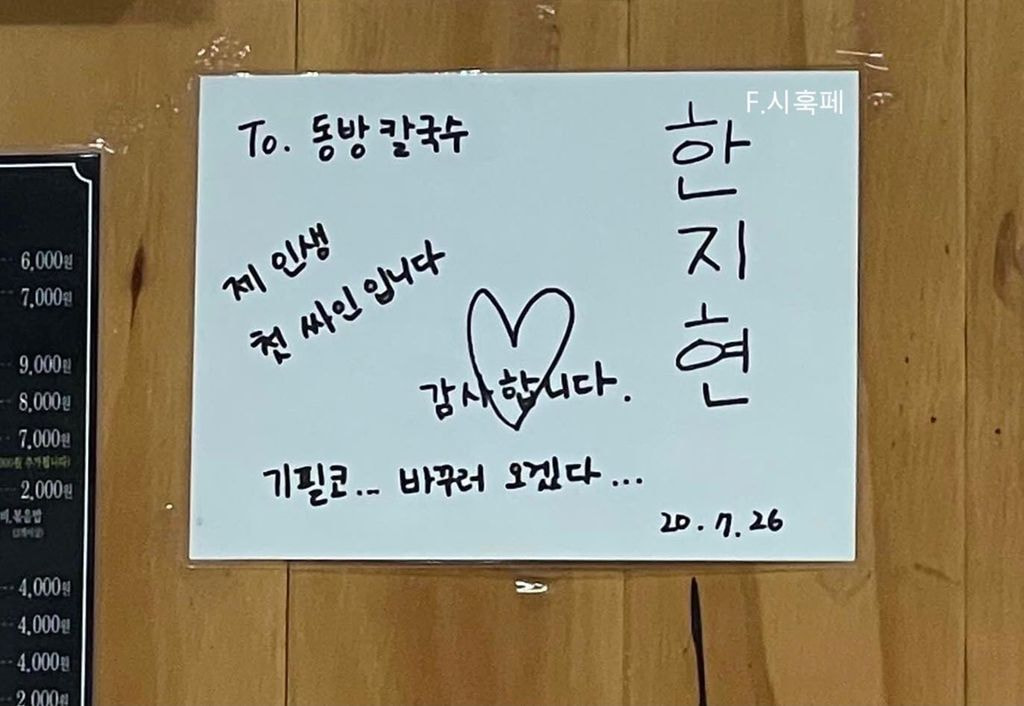 F.시훅페
To. 동방칼국수
한지현
제 인생
첫 싸인입니다
감사합니다.
기필코... 바꾸러 오겠다...
20.7.26
6,000원
7,000원
9,000원
8,000원
7,000원
2,000원
4,000원
4,000원
4,000원
2,000원